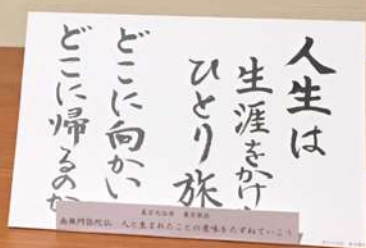 人生は
生涯をかけ
ひとり旅
どこに向かい
どこに帰るのか
南無阿弥陀仏 人と生まれたことの意味をたずねていこう